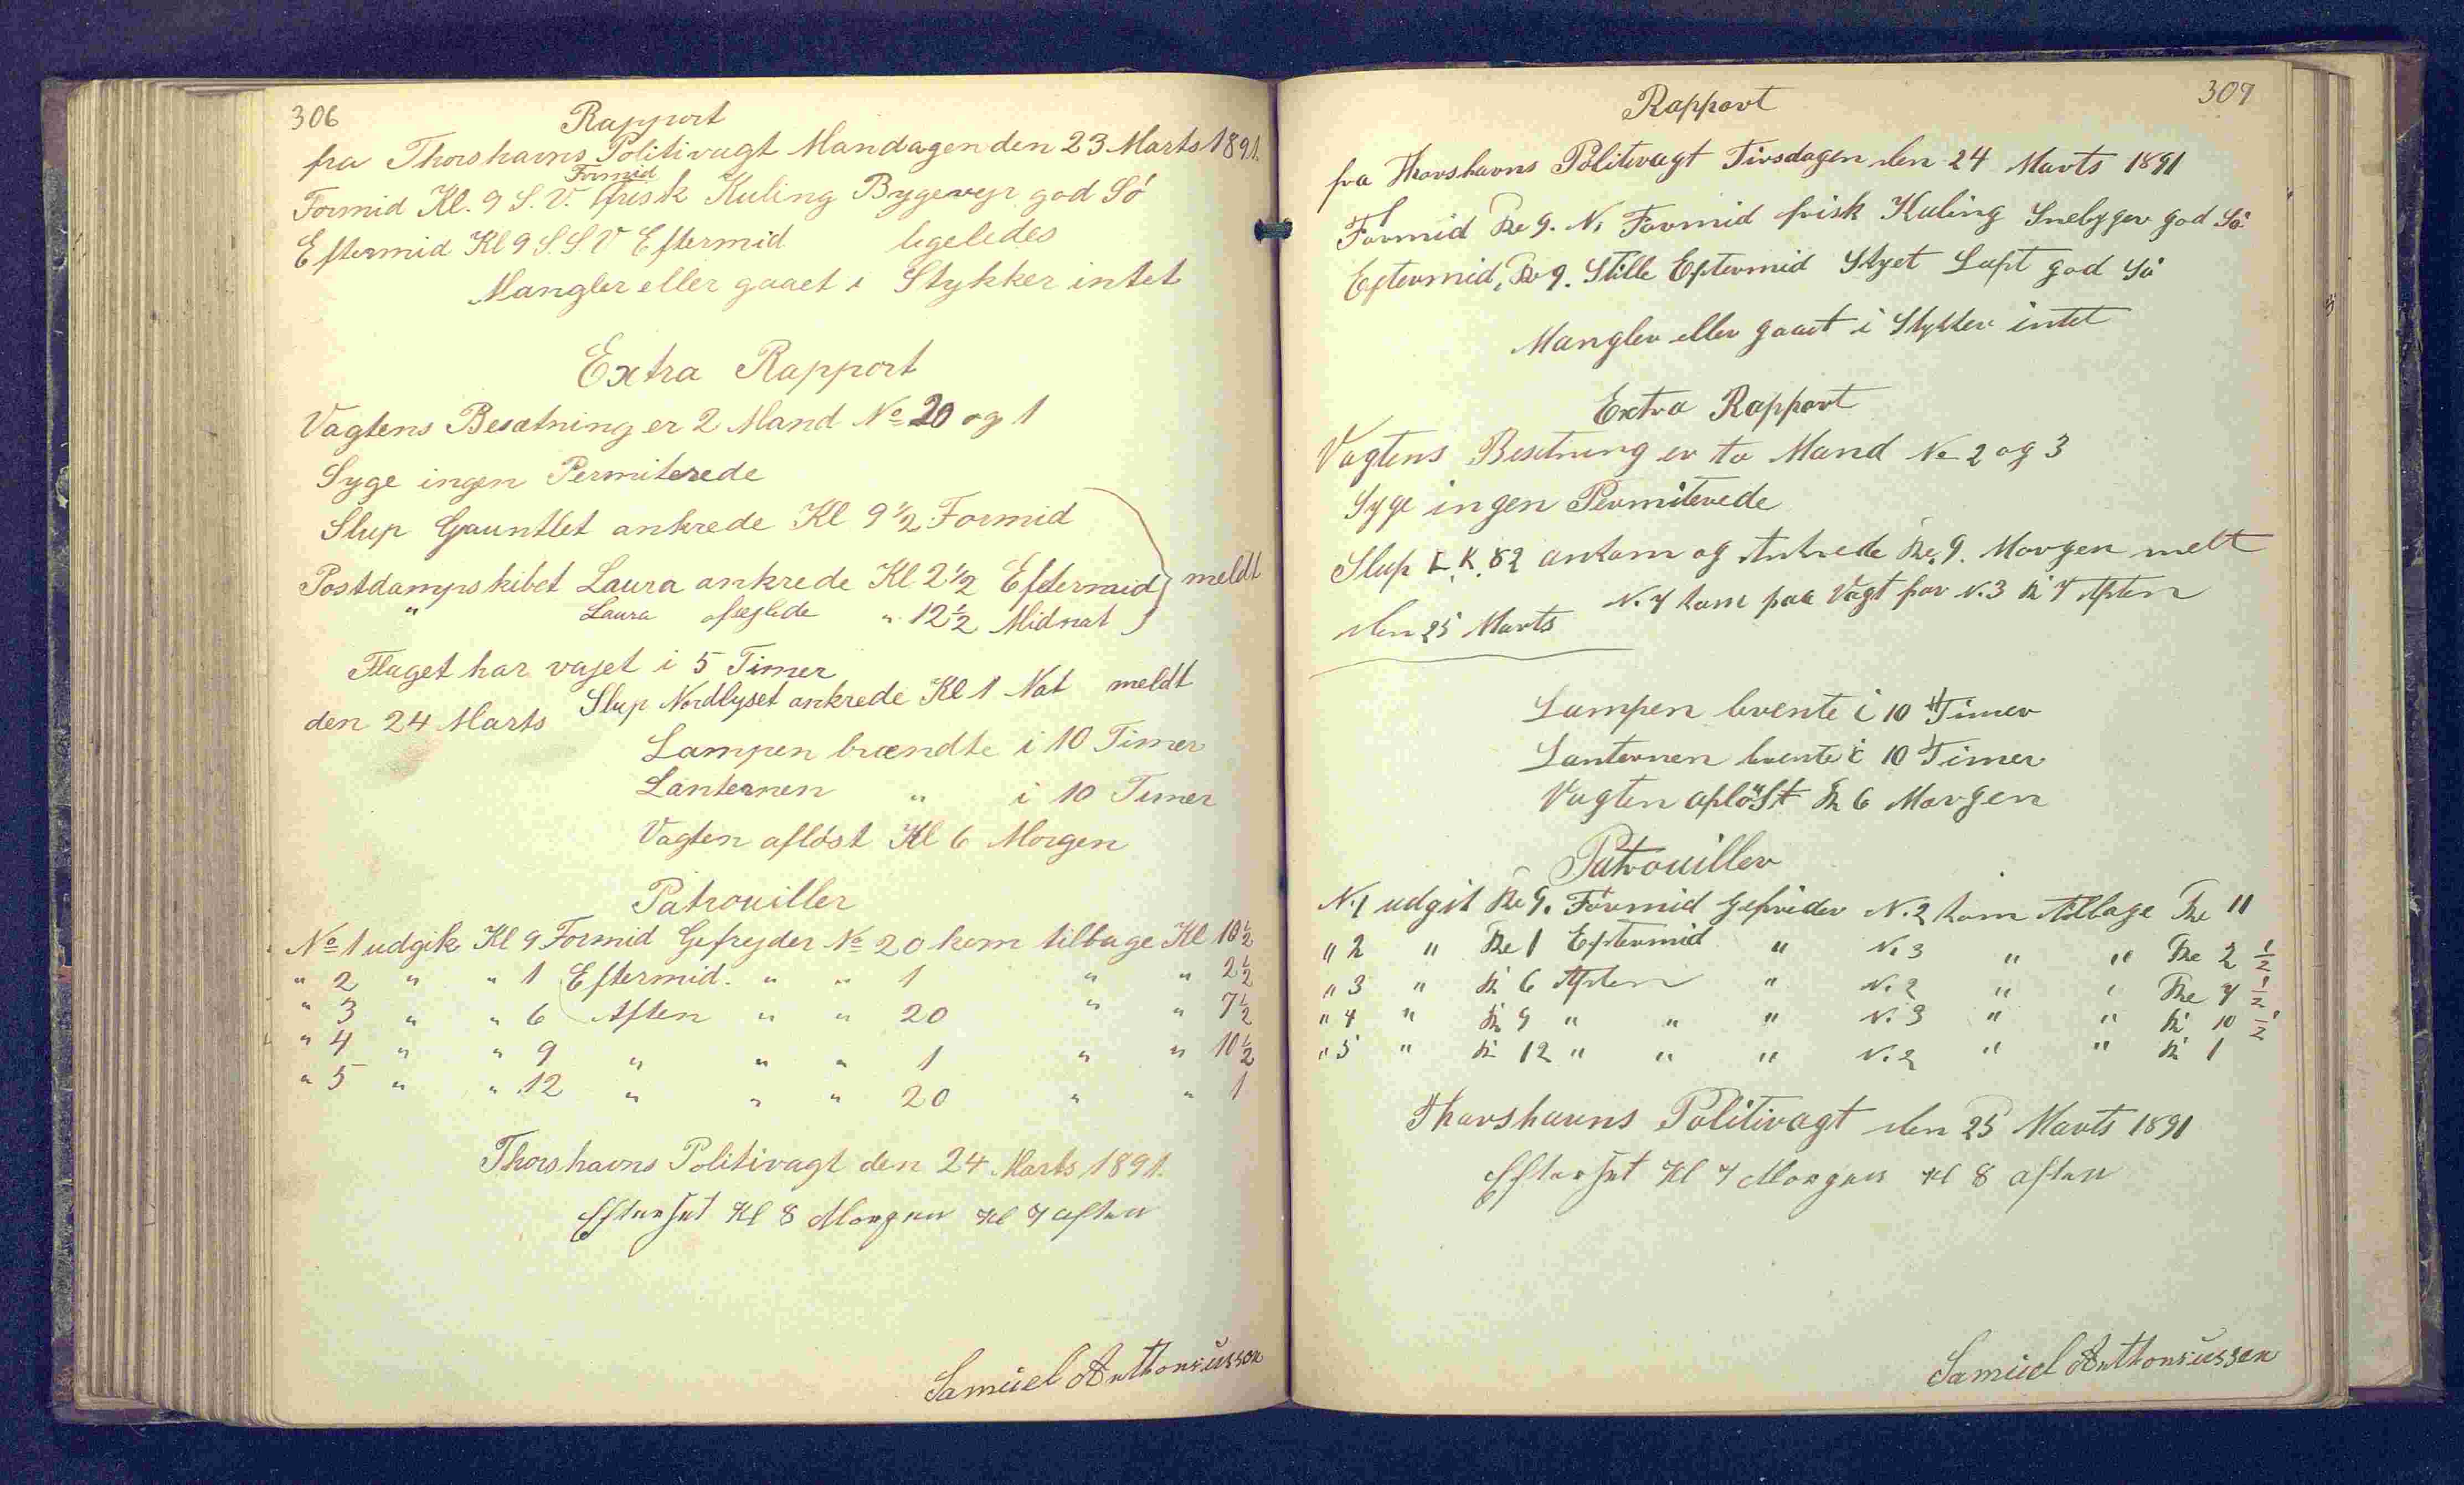 306
Rapport
fra Thorshavns Politivagt Mandagen den 23 Marts 1891.
Formid
Formid Kl. 9 S. V. frisk Kuling Bygevejr god Sö
Eftermid Kl 9 S. S. V Eftermid ligeledes
Mangler eller gaaet i Stykker intet
Extra Rapport
Vagtens Besætning er 2 Mand No 20 og 1
Syge ingen Permiterede
Slup Gauntlet ankrede Kl 9 1/2 Formid
Postdampskibet Laura ankrede Kl 2 1/2 Eftermid } meldt
" Laura afsejlede " 12 1/2 Midnat
Flaget har vajet i 5 Timer
den 24 Marts Slup Nordlyset ankrede Kl 1 Nat meldt
Lampen brændte i 10 Timer
Lanternen " i 10 Timer
Vagten aflöst Kl 6 Morgen
Patrouiller
No 1 udgik Kl 9 Formid Gefrejder No 20 kom tilbage Kl 10 1/2
" 2 " " 1 Eftermid. " " 1 " " 2 1/2
" 3 " " 6 Aften " " 20 " " 7 1/2
" 4 " " 9 " " " 1 " " 10 1/2
" 5 " " 12 " " " 20 " " 1
Thorshavns Politivagt den 24 Marts 1891.
Efterset Kl 8 Morgen Kl 7 aften
Samuel Anthoniussen
307
Rapport
fra Thorshavns Politivagt Tirsdagen den 24 Marts 1891
Formid Kl 9. N. Formid frisk Kuling Snebyger god Sö
Eftermid, Kl 9. Stille Eftermid Skyet Luft god Sö
Mangler eller gaaet i Stykker intet
Extra Rapport
Vagtens Besetning er to Mand No 2 og 3
Syge ingen Permiterede
Slup L. K. 82 ankom og Ankrede Kl. 9. Morgen melt
N. 7 kom paa Vagt for N. 3 Kl 7 Aften
den 25 Marts
Lampen brente i 10 Timer
Lanternen brente i 10 Timer
Vagten aflöst Kl 6 Morgen
Patrouiller
N. 1 udgik Kl 9. Formid Gefrider N. 2 kom tilbage Kl 11
" 2 " Kl 1 Eftermid " N. 3 " " Kl 2 1/2
" 3 " Kl 6 Aften " N. 2 " " Kl 7 1/2
" 4 " Kl 9 " " " N. 3 " " Kl 10 1/2
" 5 " Kl 12 " " " N. 2 " " Kl 1
Thorshavns Politivagt den 25 Marts 1891
Efterset Kl 7 Morgen Kl 8 aften
Samuel Anthoniussen